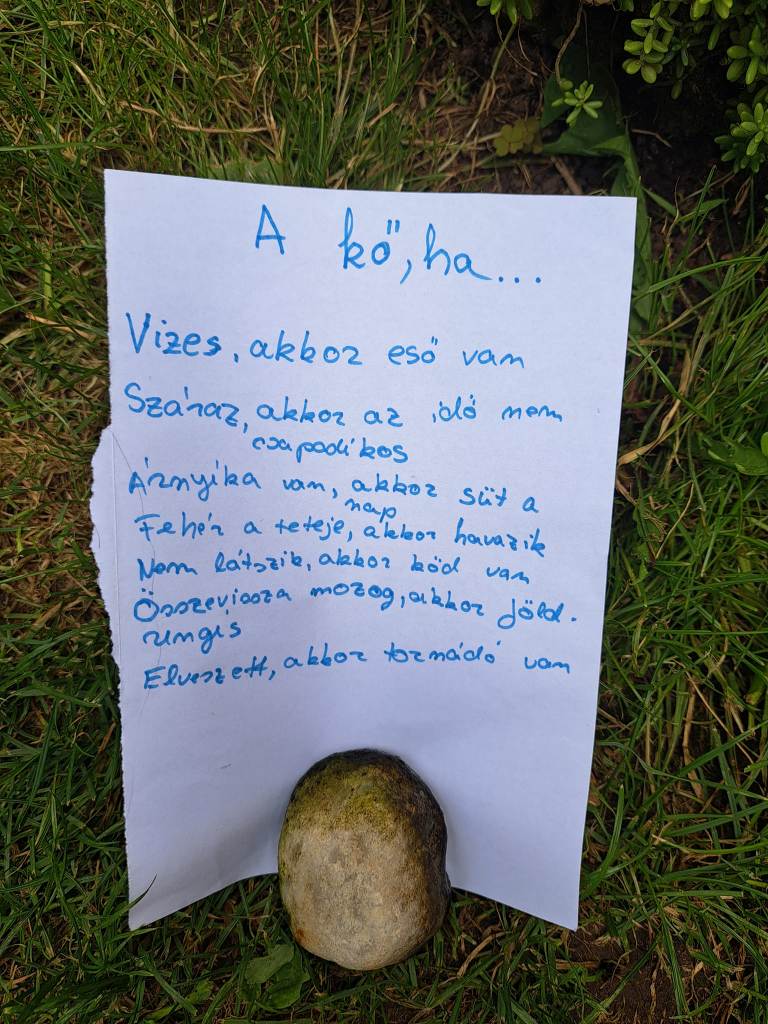 A kő, ha...
Vizes, akkor eső van
Száraz, akkor az idő nem
csapadékos
Árnyéka van, akkor süt a
nap
Fehér a teteje, akkor havazik
Nem látszik, akkor köd van
Összevissza mozog, akkor föld-
rengés
Elveszett, akkor tornádó van